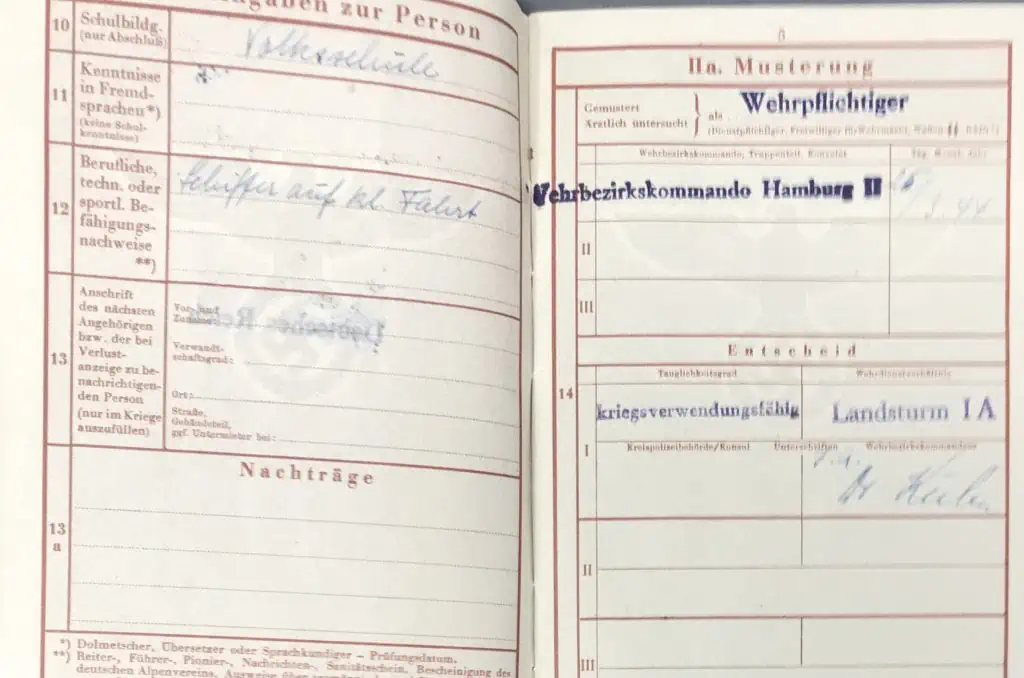 gaben zur Person
10 Schulbildg.
(nur Abschluß)
Volksschule
11 Kenntnisse
in Fremd-
sprachen*)
(keine Schul-
kenntnisse)
12 Berufliche,
techn. oder
sportl. Be-
fähigungs-
nachweise
**)
Schiffer auf kl. Fahrt
13 Anschrift
des nächsten
Angehörigen
bzw. der bei
Verlust-
anzeige zu be-
nachrichtigen-
den Person
(nur im Kriege
auszufüllen)
Vor- und
Zuname:
Verwandt-
schaftsgrad:
Ort:
Straße,
Gebäudeteil,
ggf. Untermieter bei:
Deutsches Reich
Nachträge
13
a
*) Dolmetscher, Übersetzer oder Sprachkundiger – Prüfungsdatum.
**) Reiter-, Führer-, Pionier-, Nachrichten-, Sanitätsschein, Bescheinigung des
deutschen Alpenvereins, Ausweise über
IIa. Musterung
Gemustert
Ärztlich untersucht } als Wehrpflichtiger
(Dienstpflichtiger, Freiwilliger für Wehrmacht, Waffen
Wehrbezirkskommando, Truppenteil, Konsulat
Tag, Monat, Jahr
Wehrbezirkskommando Hamburg II
44
II
III
Entscheid
Tauglichkeitsgrad
14
kriegsverwendungsfähig
Landsturm I A
I
Kreispolizeibehörde/Konsul Unterschriften Wehrbezirkskommandeur
Dr
II
III